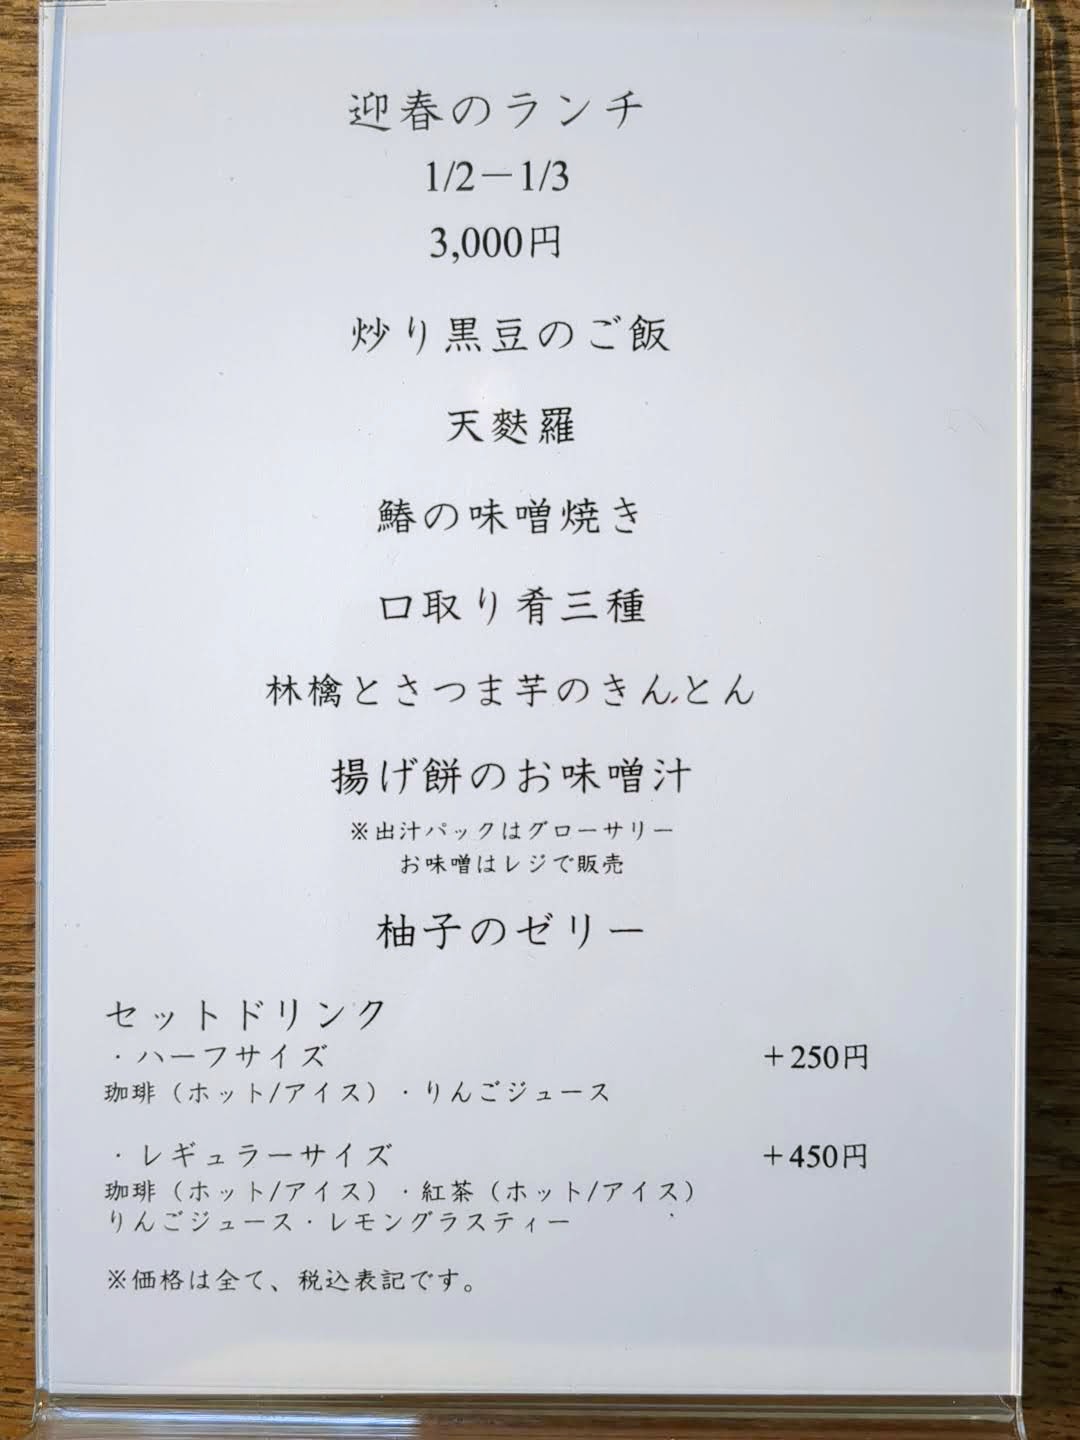 迎春のランチ
1/2－1/3
3,000円
炒り黒豆のご飯
天麩羅
鰆の味噌焼き
口取り肴三種
林檎とさつま芋のきんとん
揚げ餅のお味噌汁
※出汁パックはグローサリー
お味噌はレジで販売
柚子のゼリー
セットドリンク
・ハーフサイズ ＋250円
珈琲（ホット/アイス）・りんごジュース
・レギュラーサイズ ＋450円
珈琲（ホット/アイス）・紅茶（ホット/アイス）
りんごジュース・レモングラスティー
※価格は全て、税込表記です。